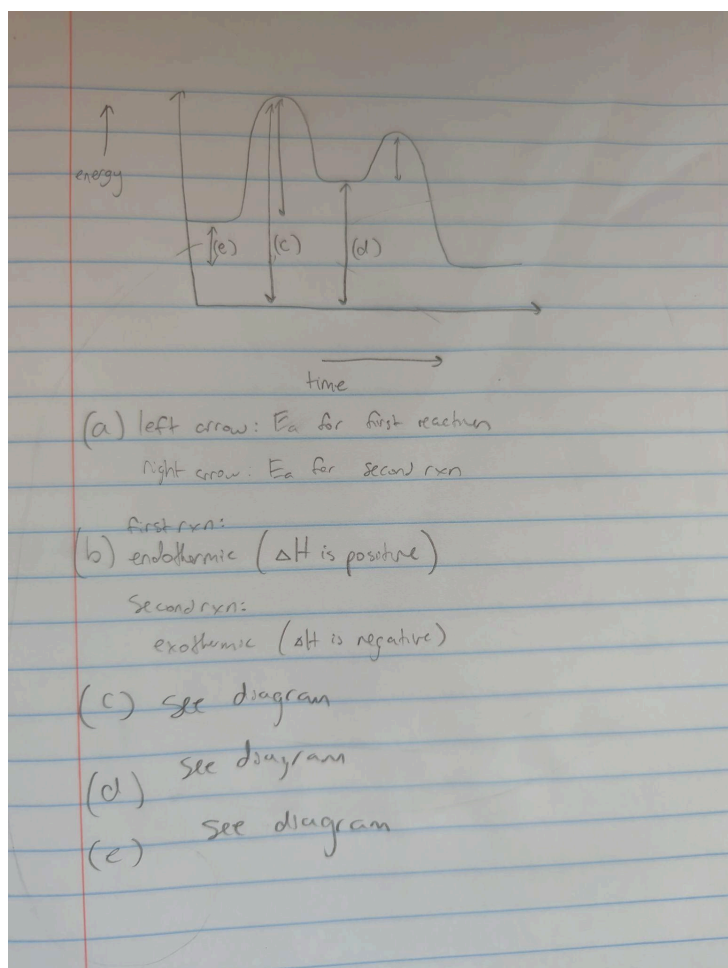 energy
(e)
(c)
(d)
time
(a) left arrow: Ea for first reaction
right arrow: Ea for second rxn
first rxn:
(b) endothermic (ΔH is positive)
second rxn:
exothermic (ΔH is negative)
(c) see diagram
(d) see diagram
(e) see diagram